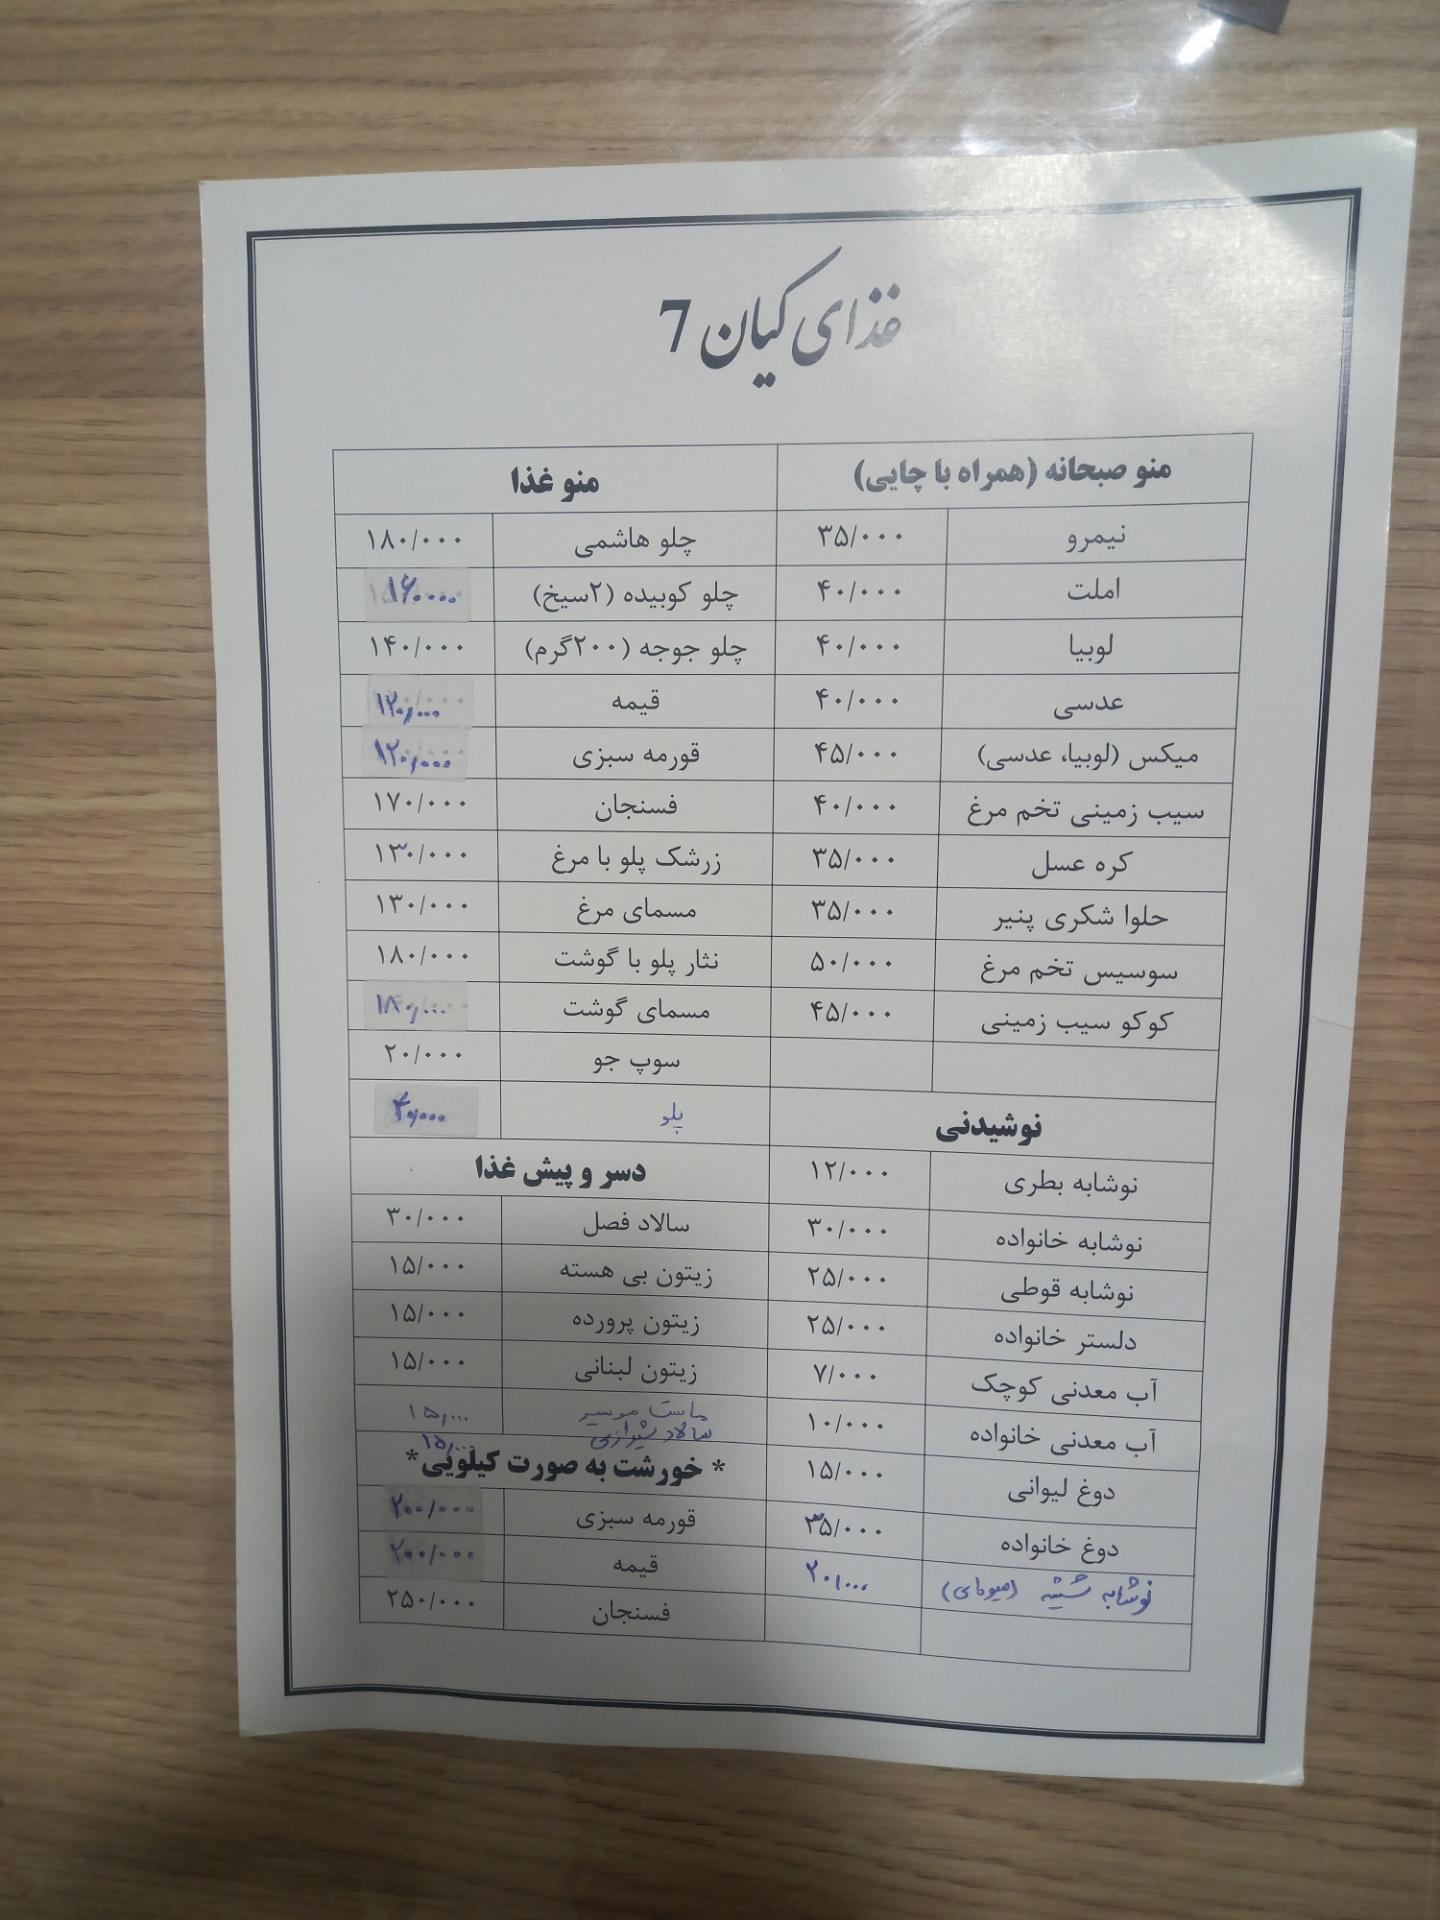 غذای کیان 7
منو صبحانه (همراه با چایی)
نیمرو ۳۵/۰۰۰
املت ۴۰/۰۰۰
لوبیا ۴۰/۰۰۰
عدسی ۴۰/۰۰۰
میکس (لوبیا، عدسی) ۴۵/۰۰۰
سیب زمینی تخم مرغ ۴۰/۰۰۰
کره عسل ۳۵/۰۰۰
حلوا شکری پنیر ۳۵/۰۰۰
سوسیس تخم مرغ ۵۰/۰۰۰
کوکو سیب زمینی ۴۵/۰۰۰
نوشیدنی
نوشابه بطری ۱۲/۰۰۰
نوشابه خانواده ۳۰/۰۰۰
نوشابه قوطی ۲۵/۰۰۰
دلستر خانواده ۲۵/۰۰۰
آب معدنی کوچک ۷/۰۰۰
آب معدنی خانواده ۱۰/۰۰۰
دوغ لیوانی ۱۵/۰۰۰
دوغ خانواده ۳۵/۰۰۰
نوشابه شیشه ۲۰,۰۰۰
منو غذا
چلو هاشمی ۱۸۰/۰۰۰
چلو کوبیده (۲سیخ) ۱۶۰۰۰۰
چلو جوجه (۲۰۰گرم) ۱۴۰/۰۰۰
قیمه ۱۲۰,۰۰۰
قورمه سبزی ۱۲۰,۰۰۰
فسنجان ۱۷۰/۰۰۰
زرشک پلو با مرغ ۱۳۰/۰۰۰
مسمای مرغ ۱۳۰/۰۰۰
نثار پلو با گوشت ۱۸۰/۰۰۰
مسمای گوشت ۱۸۰,۰۰۰
سوپ جو ۲۰/۰۰۰
پلو ۴۰,۰۰۰
دسر و پیش غذا
سالاد فصل ۳۰/۰۰۰
زیتون بی هسته ۱۵/۰۰۰
زیتون پرورده ۱۵/۰۰۰
زیتون لبنانی ۱۵/۰۰۰
ماست موسیر ۱۵,۰۰۰
سالاد شیرازی ۱۵,۰۰۰
* خورشت به صورت کیلویی*
قورمه سبزی ۲۰۰/۰۰۰
قیمه ۲۰۰/۰۰۰
فسنجان ۲۵۰/۰۰۰